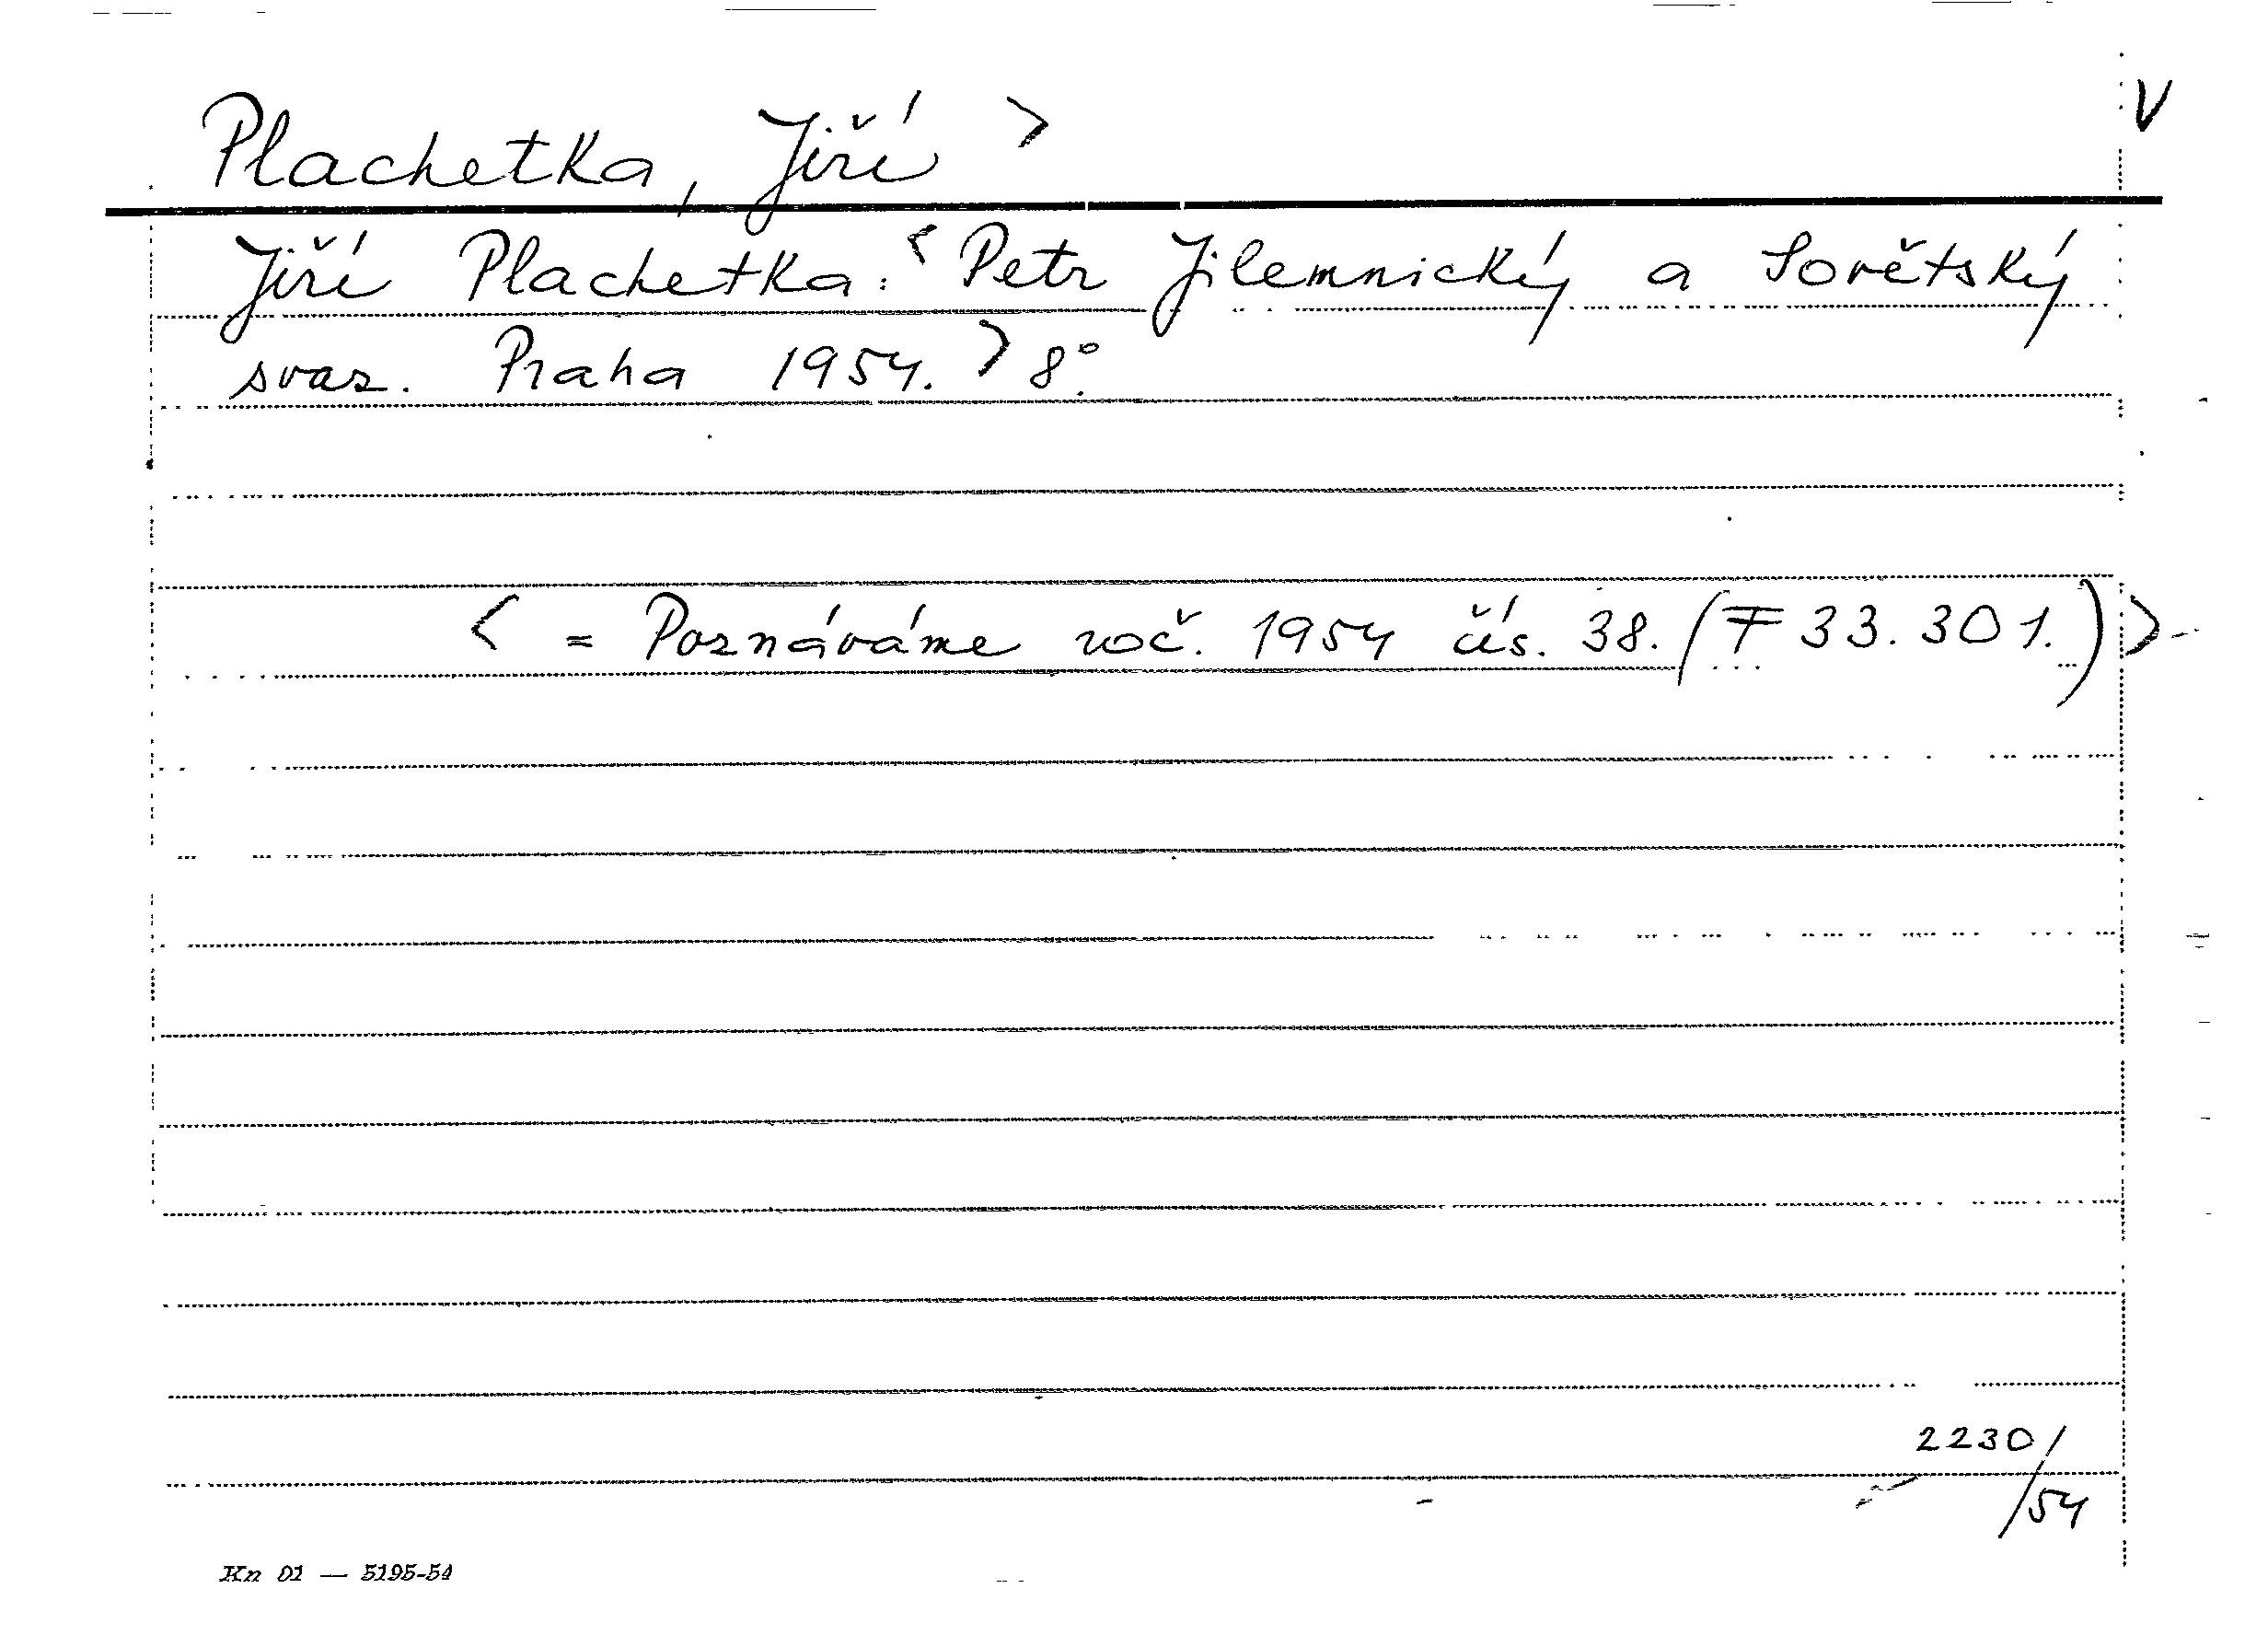 Plachetka, Jiří > V
Jiří Plachetka: < Petr Jilemnický a Sovětský
svaz. Praha 1954. > 8°.
< = Poznáváme roč. 1954 čís. 38. (F 33.301.) >
2230/
/54
Kn 01 — 5195-54